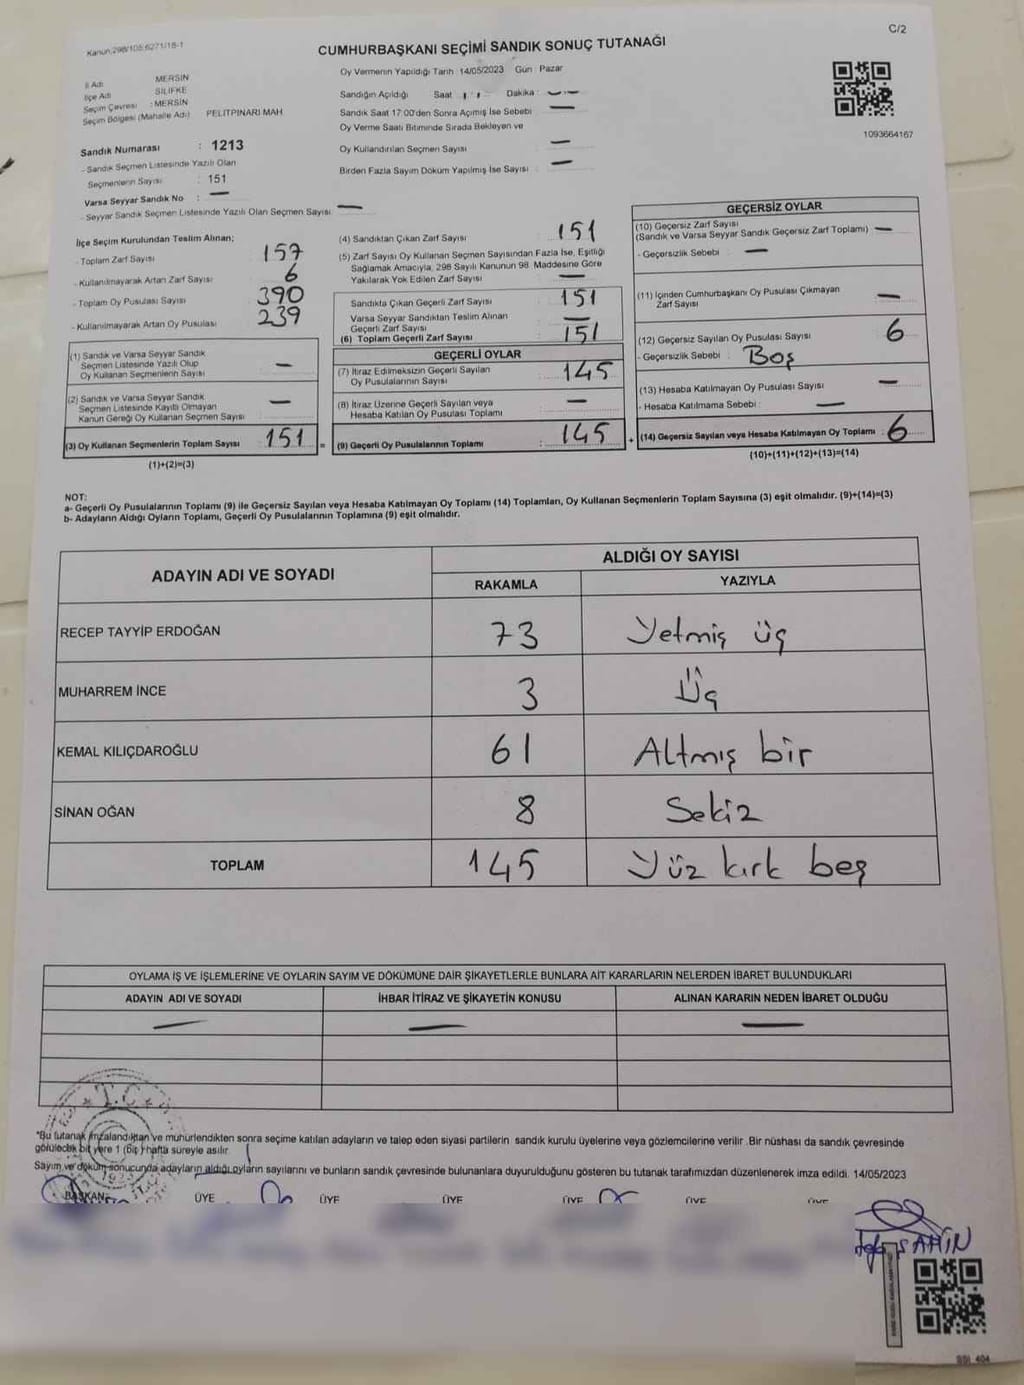 Kanun:298/105;6271/18-1
C/2
CUMHURBAŞKANI SEÇİMİ SANDIK SONUÇ TUTANAĞI
İl Adı MERSİN
İlçe Adı SİLİFKE
Seçim Çevresi : MERSİN
Seçim Bölgesi (Mahalle Adı) PELİTPINARI MAH
Sandık Numarası : 1213
- Sandık Seçmen Listesinde Yazılı Olan
Seçmenlerin Sayısı : 151
Varsa Seyyar Sandık No : —
- Seyyar Sandık Seçmen Listesinde Yazılı Olan Seçmen Sayısı: —
Oy Vermenin Yapıldığı Tarih 14/05/2023 Gün : Pazar
Sandığın Açıldığı Saat Dakika :
Sandık Saat 17:00'den Sonra Açılmış İse Sebebi : —
Oy Verme Saati Bitiminde Sırada Bekleyen ve
Oy Kullandırılan Seçmen Sayısı : —
Birden Fazla Sayım Döküm Yapılmış İse Sayısı : —
1093664167
İlçe Seçim Kurulundan Teslim Alınan;
- Toplam Zarf Sayısı 157
- Kullanılmayarak Artan Zarf Sayısı 6
- Toplam Oy Pusulası Sayısı 390
- Kullanılmayarak Artan Oy Pusulası 239
(1) Sandık ve Varsa Seyyar Sandık
Seçmen Listesinde Yazılı Olup
Oy Kullanan Seçmenlerin Sayısı —
(2) Sandık ve Varsa Seyyar Sandık
Seçmen Listesinde Kayıtlı Olmayan
Kanun Gereği Oy Kullanan Seçmen Sayısı —
(3) Oy Kullanan Seçmenlerin Toplam Sayısı 151 =
(1)+(2)=(3)
(4) Sandıktan Çıkan Zarf Sayısı 151
(5) Zarf Sayısı Oy Kullanan Seçmen Sayısından Fazla İse, Eşitliği
Sağlamak Amacıyla, 298 Sayılı Kanunun 98. Maddesine Göre
Yakılarak Yok Edilen Zarf Sayısı —
Sandıkta Çıkan Geçerli Zarf Sayısı 151
Varsa Seyyar Sandıktan Teslim Alınan
Geçerli Zarf Sayısı —
(6) Toplam Geçerli Zarf Sayısı 151
GEÇERLİ OYLAR
(7) İtiraz Edilmeksizin Geçerli Sayılan
Oy Pusulalarının Sayısı : 145
(8) İtiraz Üzerine Geçerli Sayılan veya
Hesaba Katılan Oy Pusulası Toplamı : —
(9) Geçerli Oy Pusulalarının Toplamı : 145 +
GEÇERSİZ OYLAR
(10) Geçersiz Zarf Sayısı
(Sandık ve Varsa Seyyar Sandık Geçersiz Zarf Toplamı) —
- Geçersizlik Sebebi : —
(11) İçinden Cumhurbaşkanı Oy Pusulası Çıkmayan
Zarf Sayısı —
(12) Geçersiz Sayılan Oy Pusulası Sayısı 6
- Geçersizlik Sebebi : Boş
(13) Hesaba Katılmayan Oy Pusulası Sayısı —
- Hesaba Katılmama Sebebi : —
(14) Geçersiz Sayılan veya Hesaba Katılmayan Oy Toplamı : 6
(10)+(11)+(12)+(13)=(14)
NOT:
a- Geçerli Oy Pusulalarının Toplamı (9) ile Geçersiz Sayılan veya Hesaba Katılmayan Oy Toplamı (14) Toplamları, Oy Kullanan Seçmenlerin Toplam Sayısına (3) eşit olmalıdır. (9)+(14)=(3)
b- Adayların Aldığı Oyların Toplamı, Geçerli Oy Pusulalarının Toplamına (9) eşit olmalıdır.
ADAYIN ADI VE SOYADI
ALDIĞI OY SAYISI
RAKAMLA YAZIYLA
RECEP TAYYİP ERDOĞAN 73 Yetmiş üç
MUHARREM İNCE 3 Üç
KEMAL KILIÇDAROĞLU 61 Altmış bir
SİNAN OĞAN 8 Sekiz
TOPLAM 145 Yüz kırk beş
OYLAMA İŞ VE İŞLEMLERİNE VE OYLARIN SAYIM VE DÖKÜMÜNE DAİR ŞİKAYETLERLE BUNLARA AİT KARARLARIN NELERDEN İBARET BULUNDUKLARI
ADAYIN ADI VE SOYADI İHBAR İTİRAZ VE ŞİKAYETİN KONUSU ALINAN KARARIN NEDEN İBARET OLDUĞU
— — —
T.C.
*Bu tutanak imzalandıktan ve mühürlendikten sonra seçime katılan adayların ve talep eden siyasi partilerin sandık kurulu üyelerine veya gözlemcilerine verilir. Bir nüshası da sandık çevresinde
görülecek bir yere 1 (bir) hafta süreyle asılır.
Sayım ve döküm sonucunda adayların aldığı oyların sayılarını ve bunların sandık çevresinde bulunanlara duyurulduğunu gösteren bu tutanak tarafımızdan düzenlenerek imza edildi. 14/05/2023
BAŞKAN ÜYE ÜYE ÜYE ÜYE ÜYE ÜYE
ŞAHİN